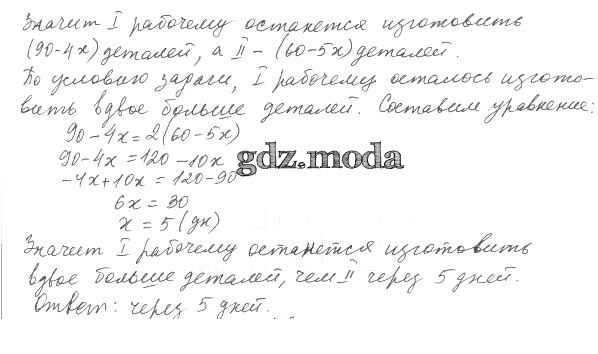 Значит I рабочему останется изготовить
(90-4х) деталей, а II - (60-5х) деталей.
По условию задачи, I рабочему осталось изгото-
вить вдвое больше деталей. Составим уравнение:
90-4х=2(60-5х)
90-4х=120-10х
gdz.moda
-4х+10х=120-90
6х=30
х=5 (дн)
Значит I рабочему останется изготовить
вдвое больше деталей, чем II через 5 дней.
Ответ: через 5 дней.